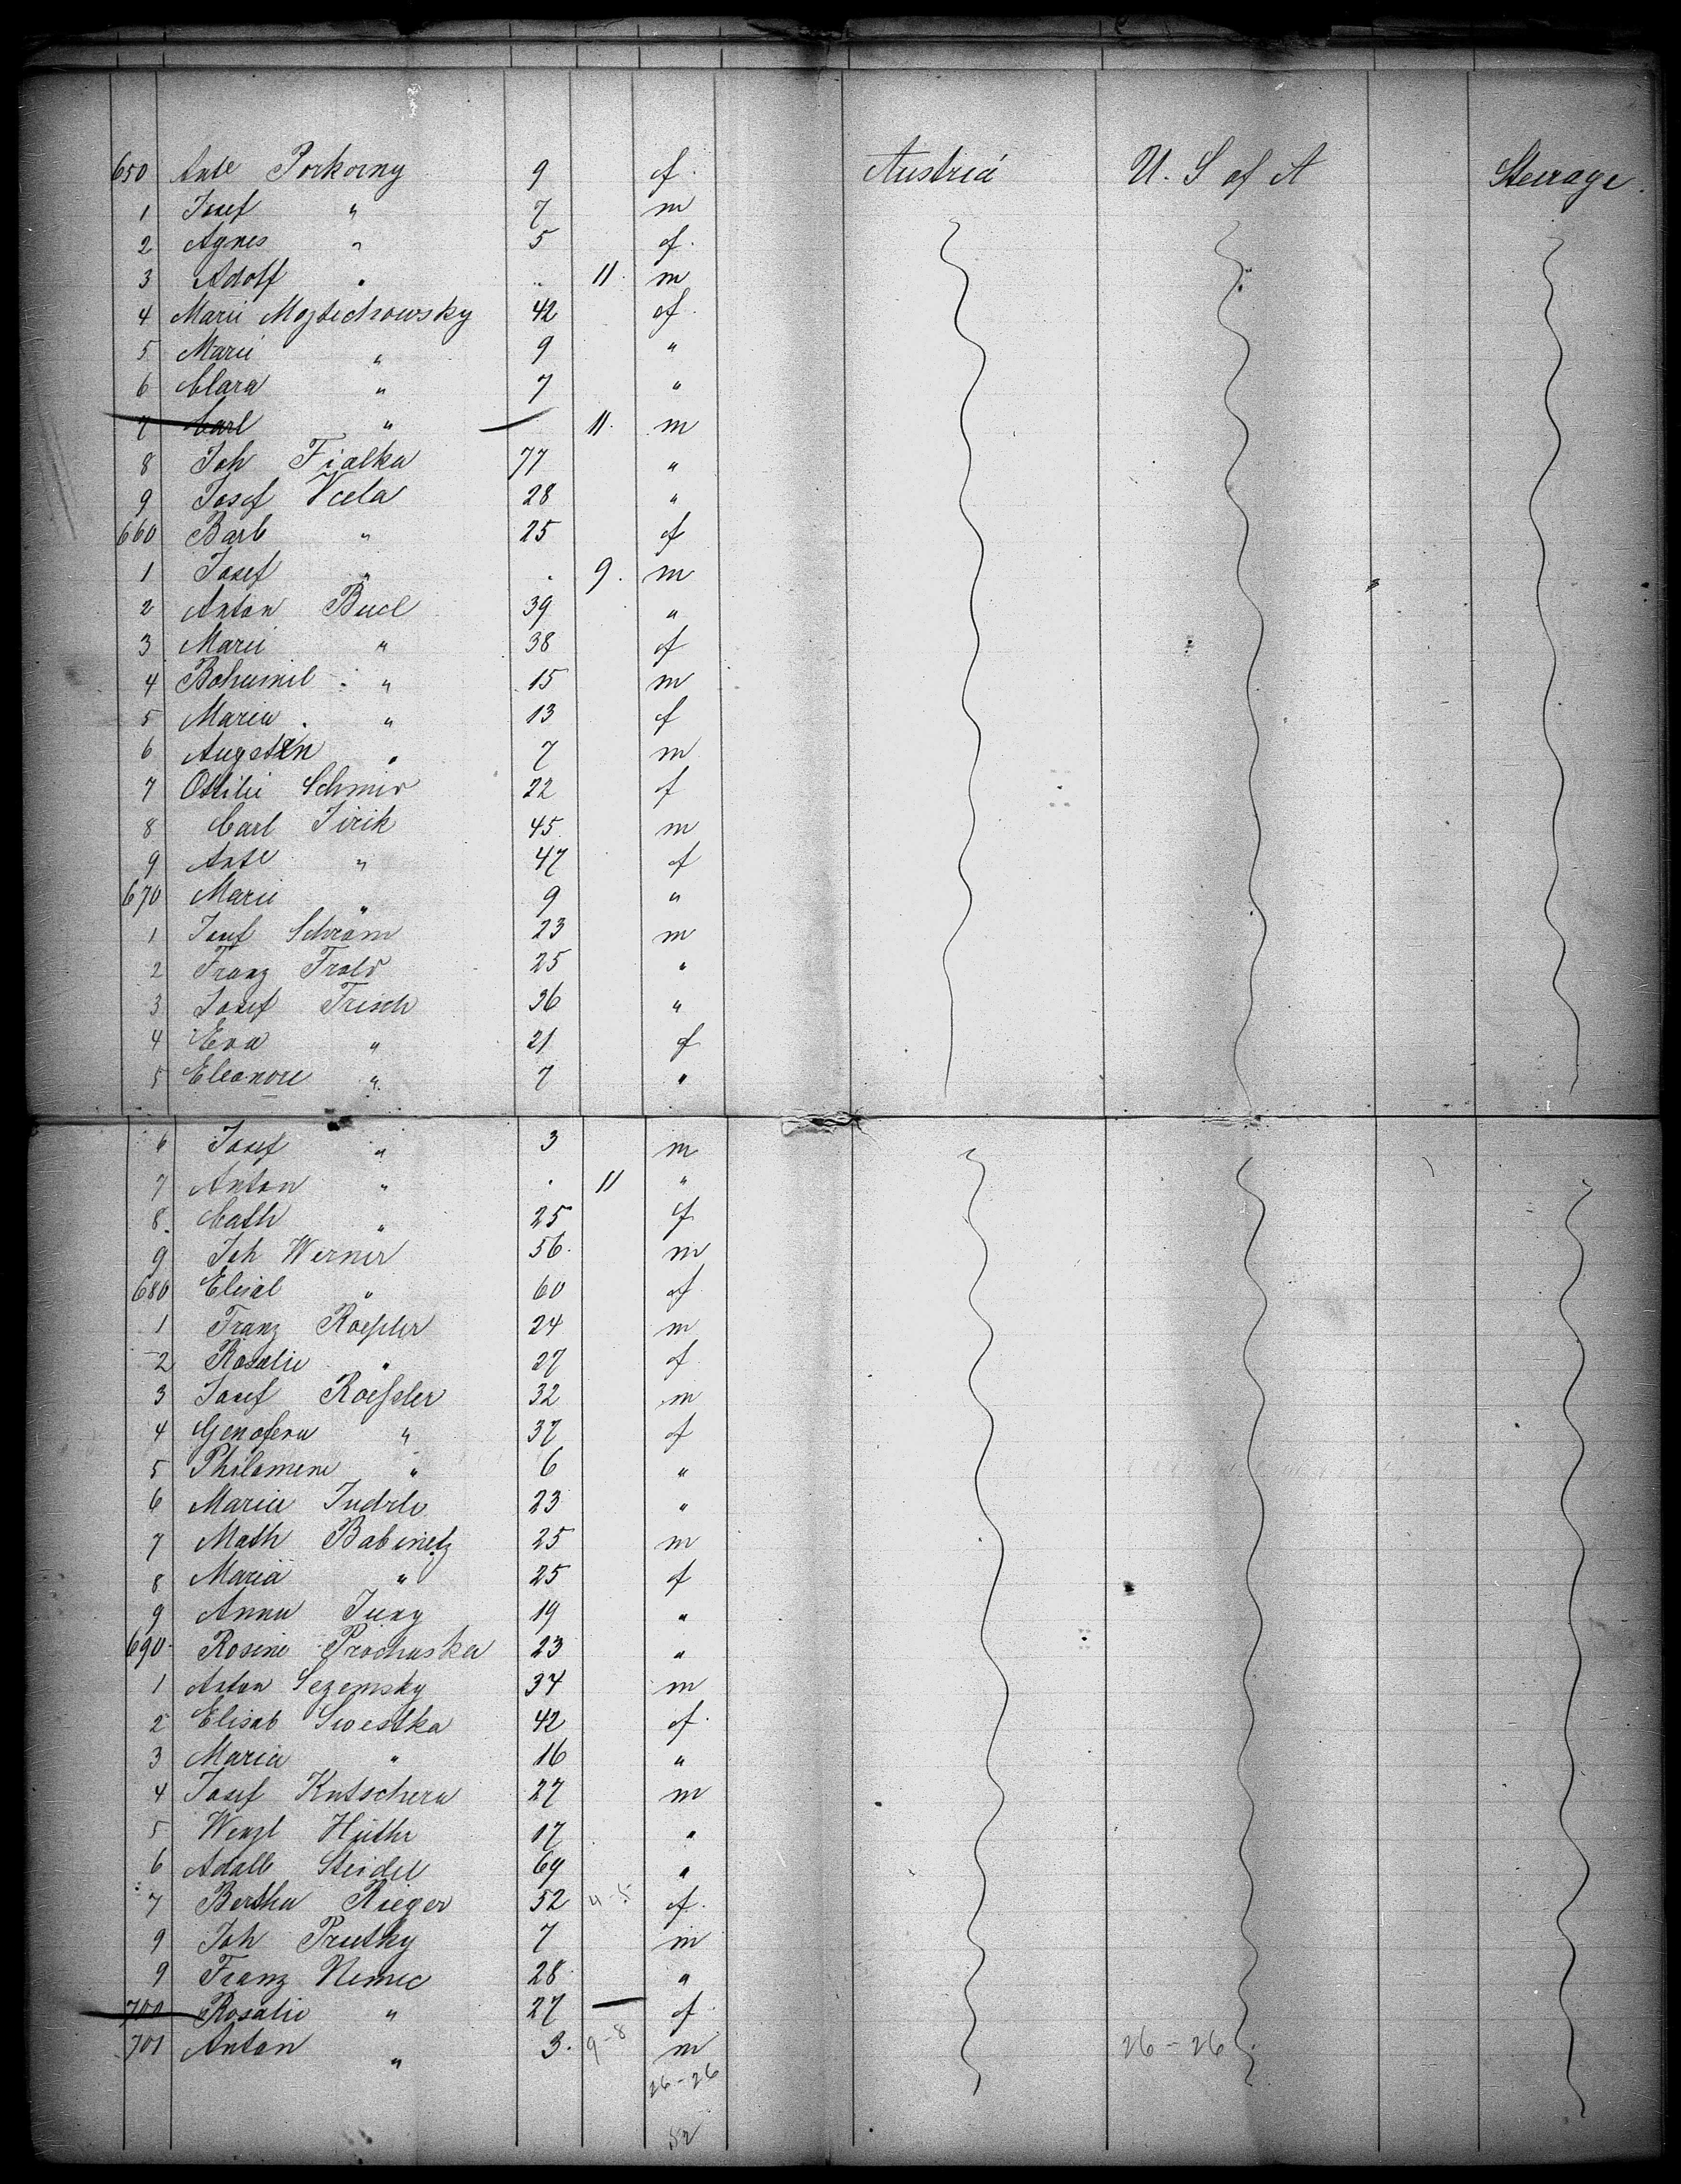 650 Ante Porkorny 9 f. Austria U. S of A Steerage.
1 Josef " 7 m
2 Agnes " 5 f.
3 Adolf " .. 11. m
4 Marie Mojtechowsky 42 f.
5 Marie " 9 "
6 Clara " 7 "
7 Carl " 11. m
8 Joh Fialka 77 "
9 Josef Vcela 28 "
660 Barb " 25 f
1 Josef " . 9. m
2 Anton Bucl 39 "
3 Marie " 38 f
4 Bohumil " 15 m
5 Maria " 13 f
6 Augstin " 7 m
7 Ottilie Schmid 22 f
8 Carl Jirik 45 m
9 Ante " 47 f
670 Marie " 9 "
1 Josef Schram 23 m
2 Franz 25 "
3 Josef Frisch 36 "
4 Eva " 21 f
5 Eleanore " 7 "
6 Josef " 3 m
7 Anton " . 11 "
8. Cath " 25 f
9 Joh Werner 56. m
680 " 60 f
1 Franz Roessler 24 m
2 Rosalie " 27 f
3 Josef Roessler 32 m
4 Genofeva " 37 f
5 Philomene " 6 "
6 Marie 23 "
7 Math Babinetz 25 m
8 Maria " 25 f
9 Anna Jung 19 "
690 Rosine Prochaska 23 "
1 Anton Sezemsky 34 m
2 Elisab Swestka 42 f.
3 Maria " 16 "
4 Josef Kutschera 27 m
5 Wenzl 17 "
6 Adalb Steidel 69 "
7 Bertha Rieger 52 4-5 f.
9 Joh Prutky 7 m
9 Franz Nemec 28 "
700 Rosalie " 27 f
701 Anton " 3. 9-8 m 26-26
26-26
52